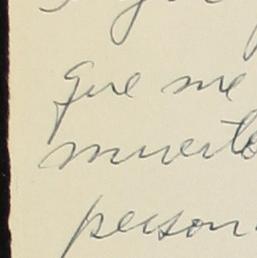 que me
muerto
person